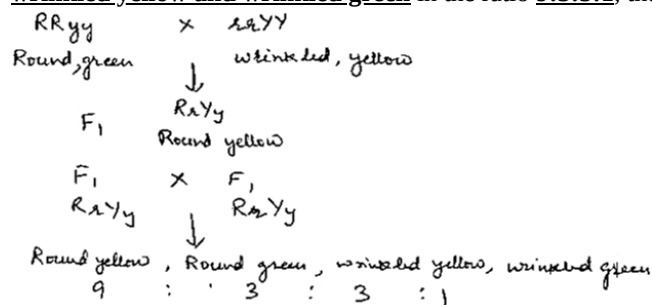 wrinkled yellow and wrinkled green in the ratio 9:3:3:1, th
RRyy × rrYY
Round, green wrinkled, yellow
RrYy
F1 Round yellow
F1 × F1
RrYy RrYy
Round yellow, Round green, wrinkled yellow, wrinkled green
9 : 3 : 3 : 1